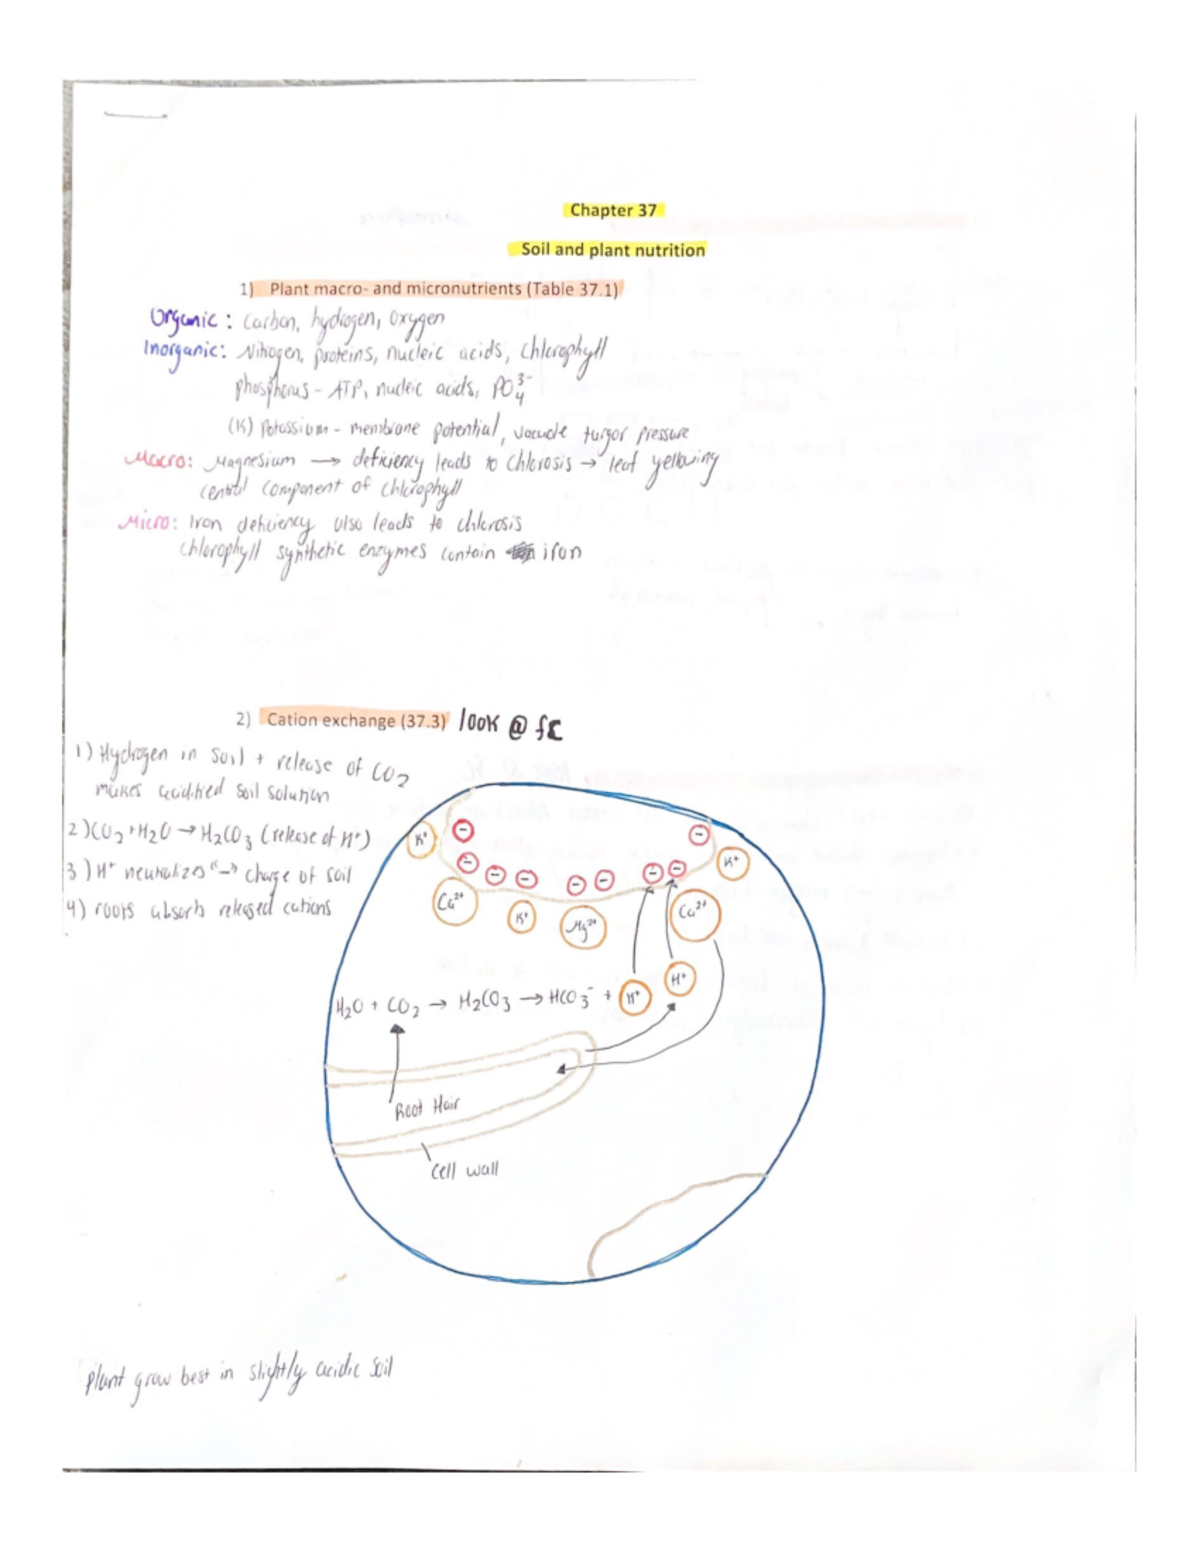 Chapter 37
Soil and plant nutrition
1) Plant macro- and micronutrients (Table 37.1)
Organic: Carbon, hydrogen, oxygen
Inorganic: Nitrogen, proteins, nucleic acids, chlorophyll
phosphorus - ATP, nucleic acids, PO₄³⁻
(K) Potassium - membrane potential, vacuole turgor pressure
Macro: Magnesium → deficiency leads to chlorosis → leaf yellowing
central component of chlorophyll
Micro: Iron deficiency also leads to chlorosis
Chlorophyll synthetic enzymes contain iron
2) Cation exchange (37.3) look @ fc
1) Hydrogen in soil + release of CO₂
makes acidified soil solution
2) CO₂ + H₂O → H₂CO₃ (release of H⁺)
3) H⁺ neutralizes "-" charge of soil
4) roots absorb released cations
K⁺ - - - - - - - - - K⁺
Ca²⁺ K⁺ Mg²⁺ Ca²⁺
H⁺
H₂O + CO₂ → H₂CO₃ → HCO₃⁻ + H⁺
Root Hair
Cell wall
plant grow best in slightly acidic soil